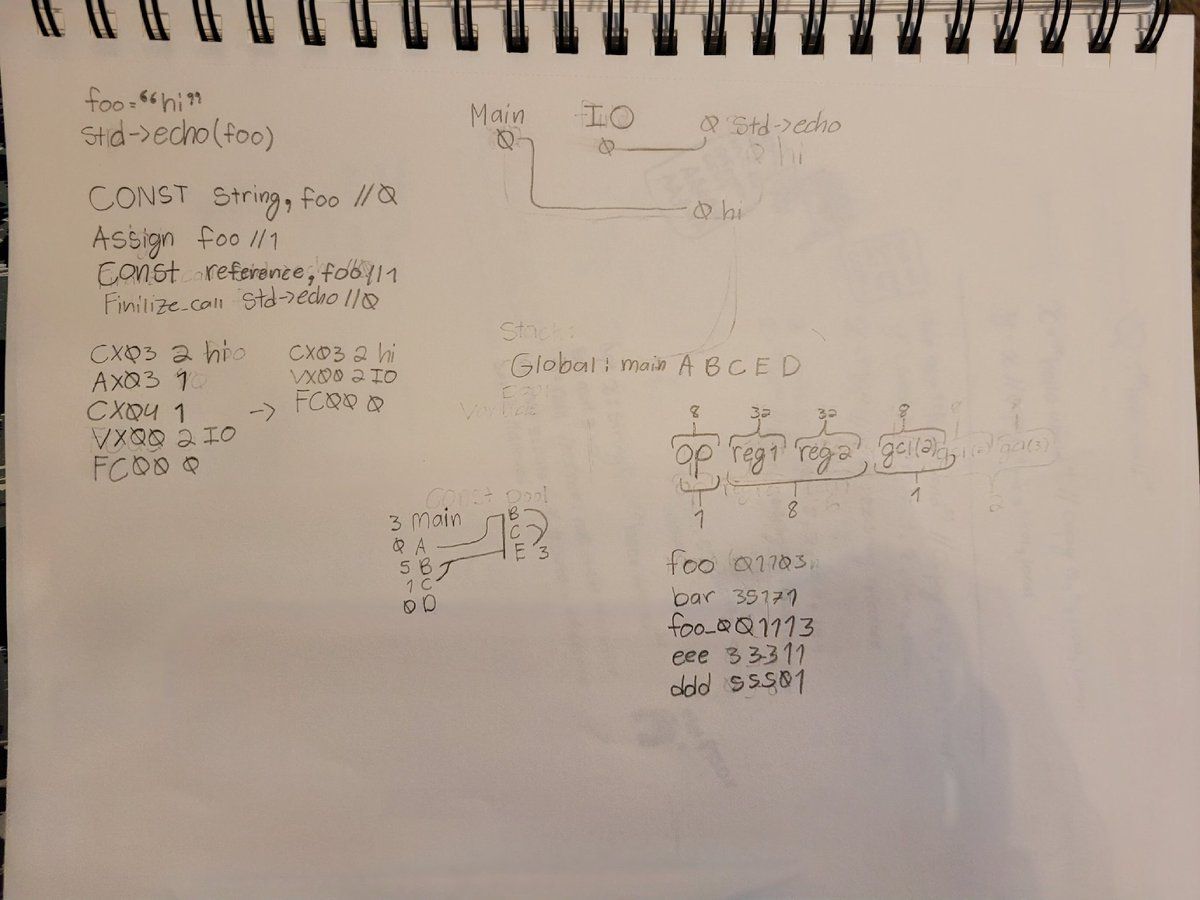 foo = “hi”
std->echo(foo)
CONST string, foo //0
Assign foo //1
Const reference, foo //1
Finilize_call std->echo //0
CX03 2 hi
AX03 1
CX04 1
VX00 2 IO
FC00 0
->
CX03 2 hi
VX00 2 IO
FC00 0
Main IO
0 0 0 std->echo
0 hi
0 hi
Stack:
Global: main A B C E D
8 32 32 8
op reg1 reg2 gci(2)
1 8 1
2
Const pool
3 Main B
0 A C
5 B E 3
1 C
0 D
foo 01103
bar 35171
foo_001113
eee 33311
ddd 55501